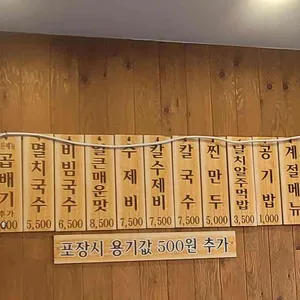 곱배기
추가
멸치국수
5,500
비빔국수
6,500
얼큰매운맛
8,500
수제비
7,500
칼수제비
7,500
칼국수
7,500
찐만두
5,000
날치알주먹밥
3,500
공기밥
1,000
계절메뉴
포장시 용기값 500원 추가